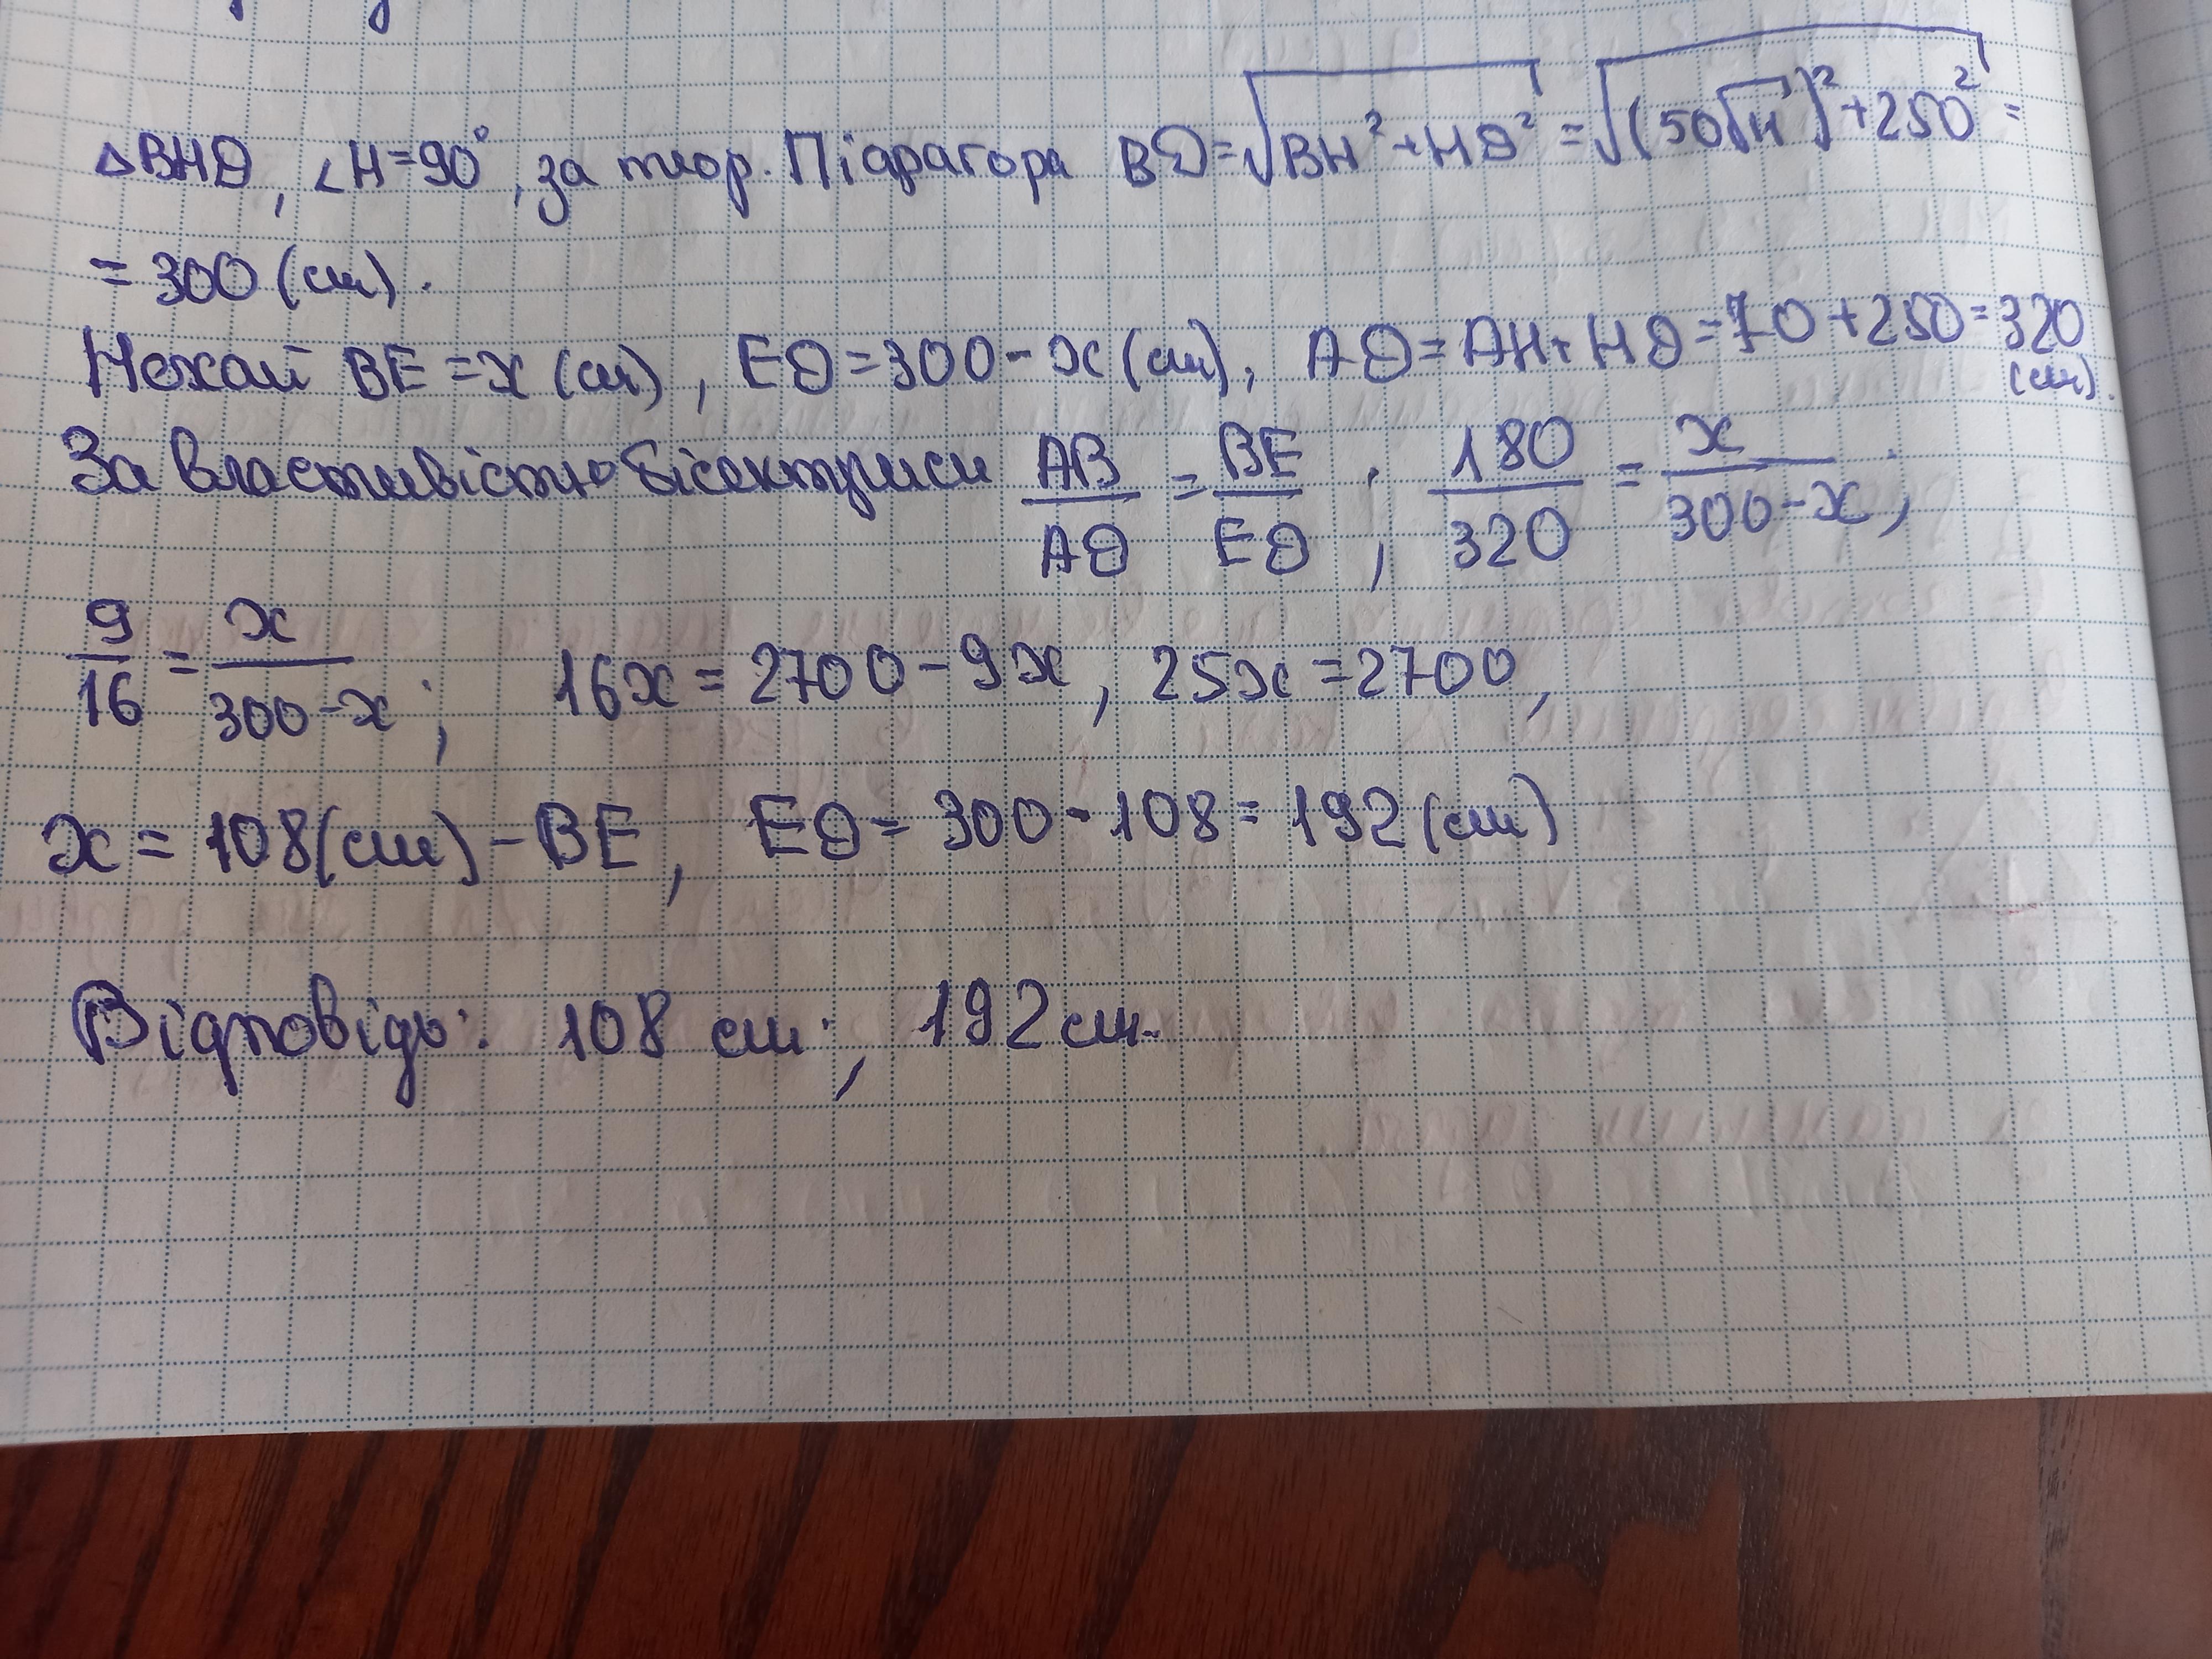 △BHD, ∠H=90°, за теор. Піфагора BD=√(BH²+HD²) = √((50√11)²+250²) =
= 300 (см).
Нехай BE = x (см), ED = 300 - x (см), AD = AH + HD = 70 + 250 = 320 (см).
За властивістю бісектриси AB/AD = BE/ED ; 180/320 = x/(300-x);
9/16 = x/(300-x); 16x = 2700 - 9x, 25x = 2700,
x = 108(см) - BE, ED = 300 - 108 = 192 (см)
Відповідь: 108 см; 192 см.